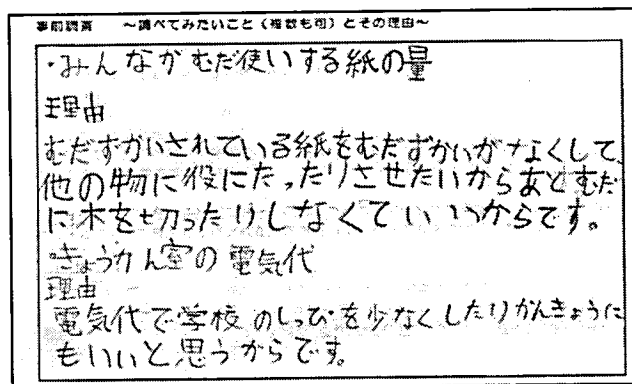 事前調査　～調べてみたいこと（複数も可）とその理由～
・みんなかむだ使いする紙の量
理由
むだずかいされている紙をむだずかいがなくして、
他の物に役にたったりさせたいからあとむだ
に木を切ったりしなくていいからです。
・きょうかん室の電気代
理由
電気代で学校のしっぴを少なくしたりかんきょうに
もいいと思うからです。